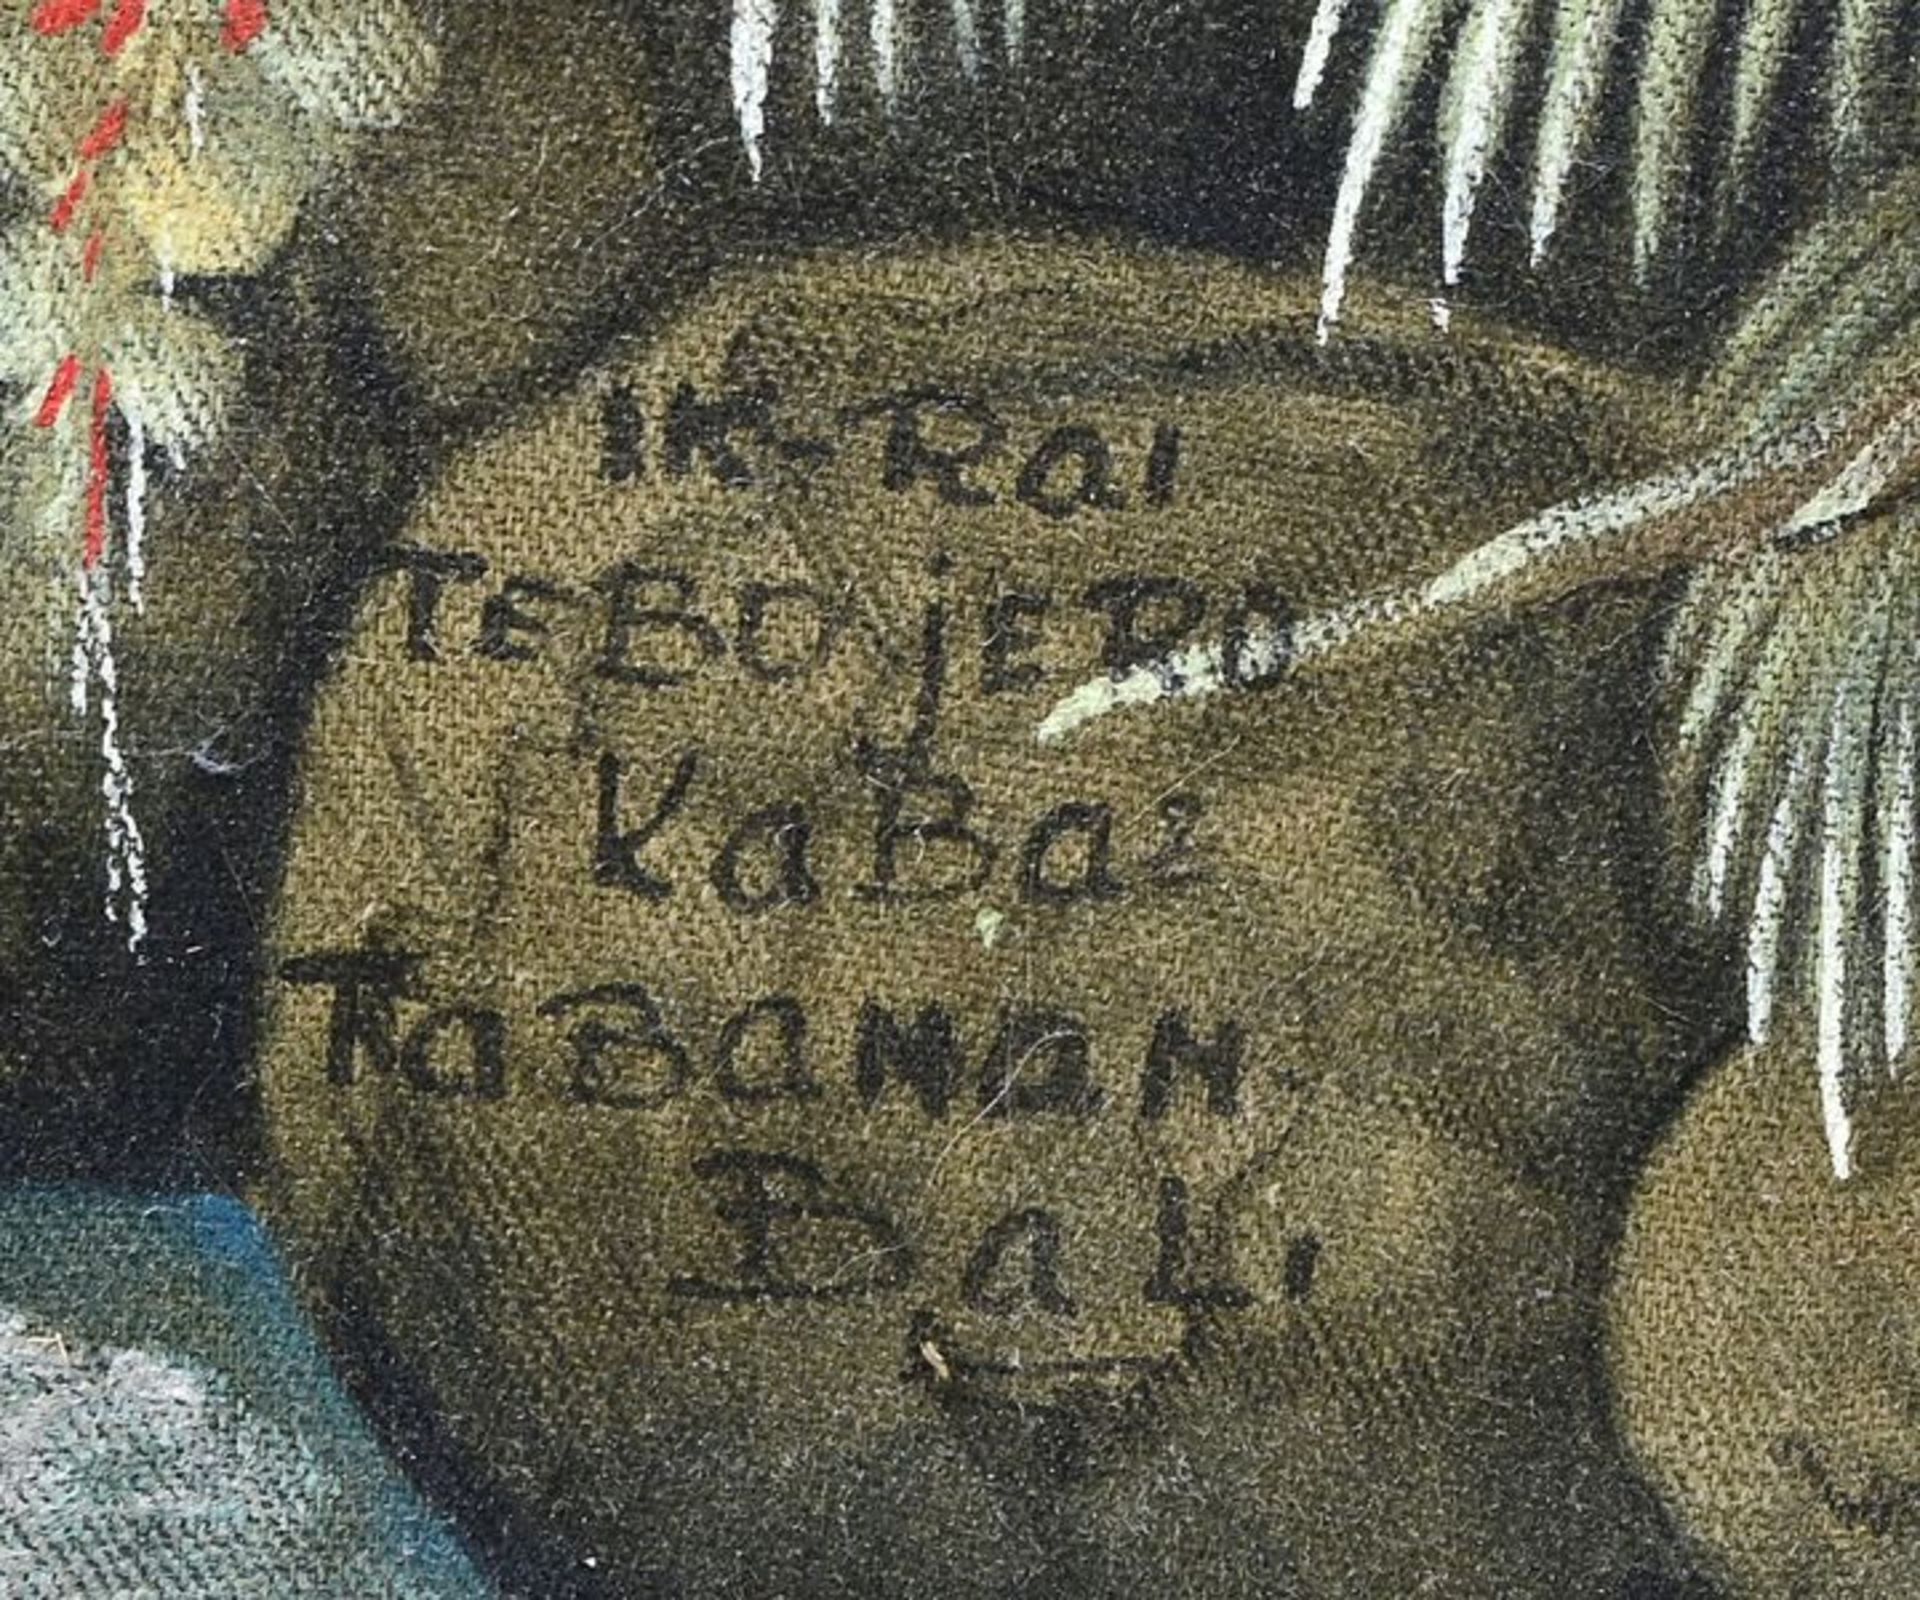 IK-Rai
TEBO jERO
KaBa2
TaBaNaN.
BaLi